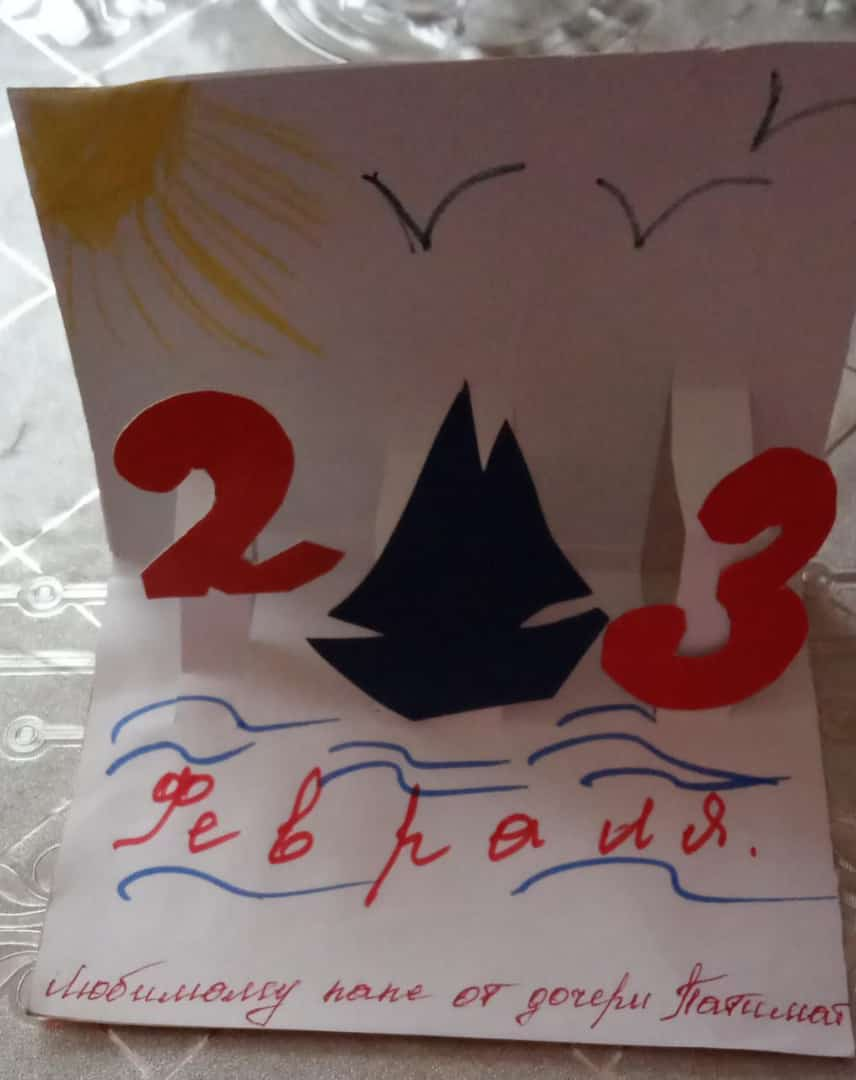 23
Февраля.
Любимому папе от дочери Патимат